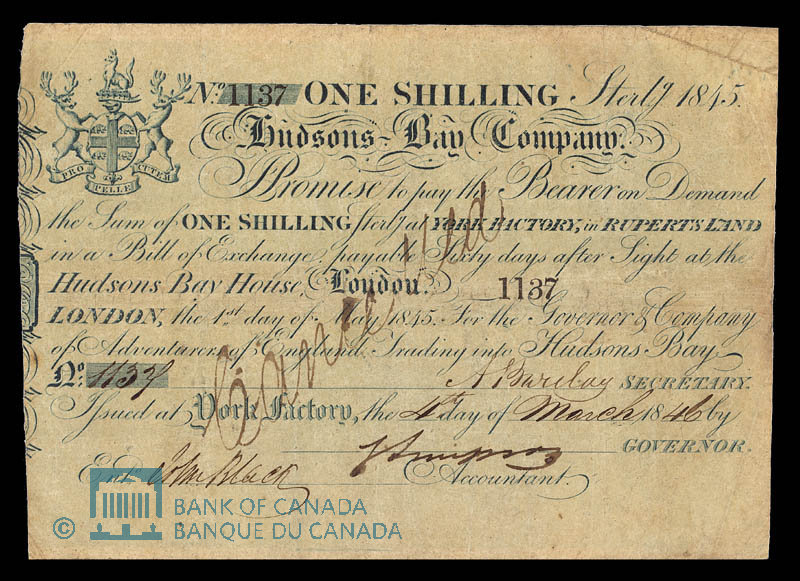 No. 1137 ONE SHILLING Sterlg 1845.
Hudsons-Bay Company.
PRO PELLE CUTEM
Promise to pay the Bearer on Demand
the Sum of ONE SHILLING Sterlg at YORK FACTORY, in RUPERT'S LAND
in a Bill of Exchange, payable Sixty days after Sight at the
Hudsons Bay House, London. 1137
LONDON, the 1st day of May 1845. For the Governor & Company
of Adventurers of England, Trading into Hudsons Bay
No. 1137 A Barclay SECRETARY.
Issued at York Factory, the 4th day of March 1846 by
GOVERNOR.
G Simpson
Entd. John Black Accountant.
Cancelled
© BANK OF CANADA
BANQUE DU CANADA